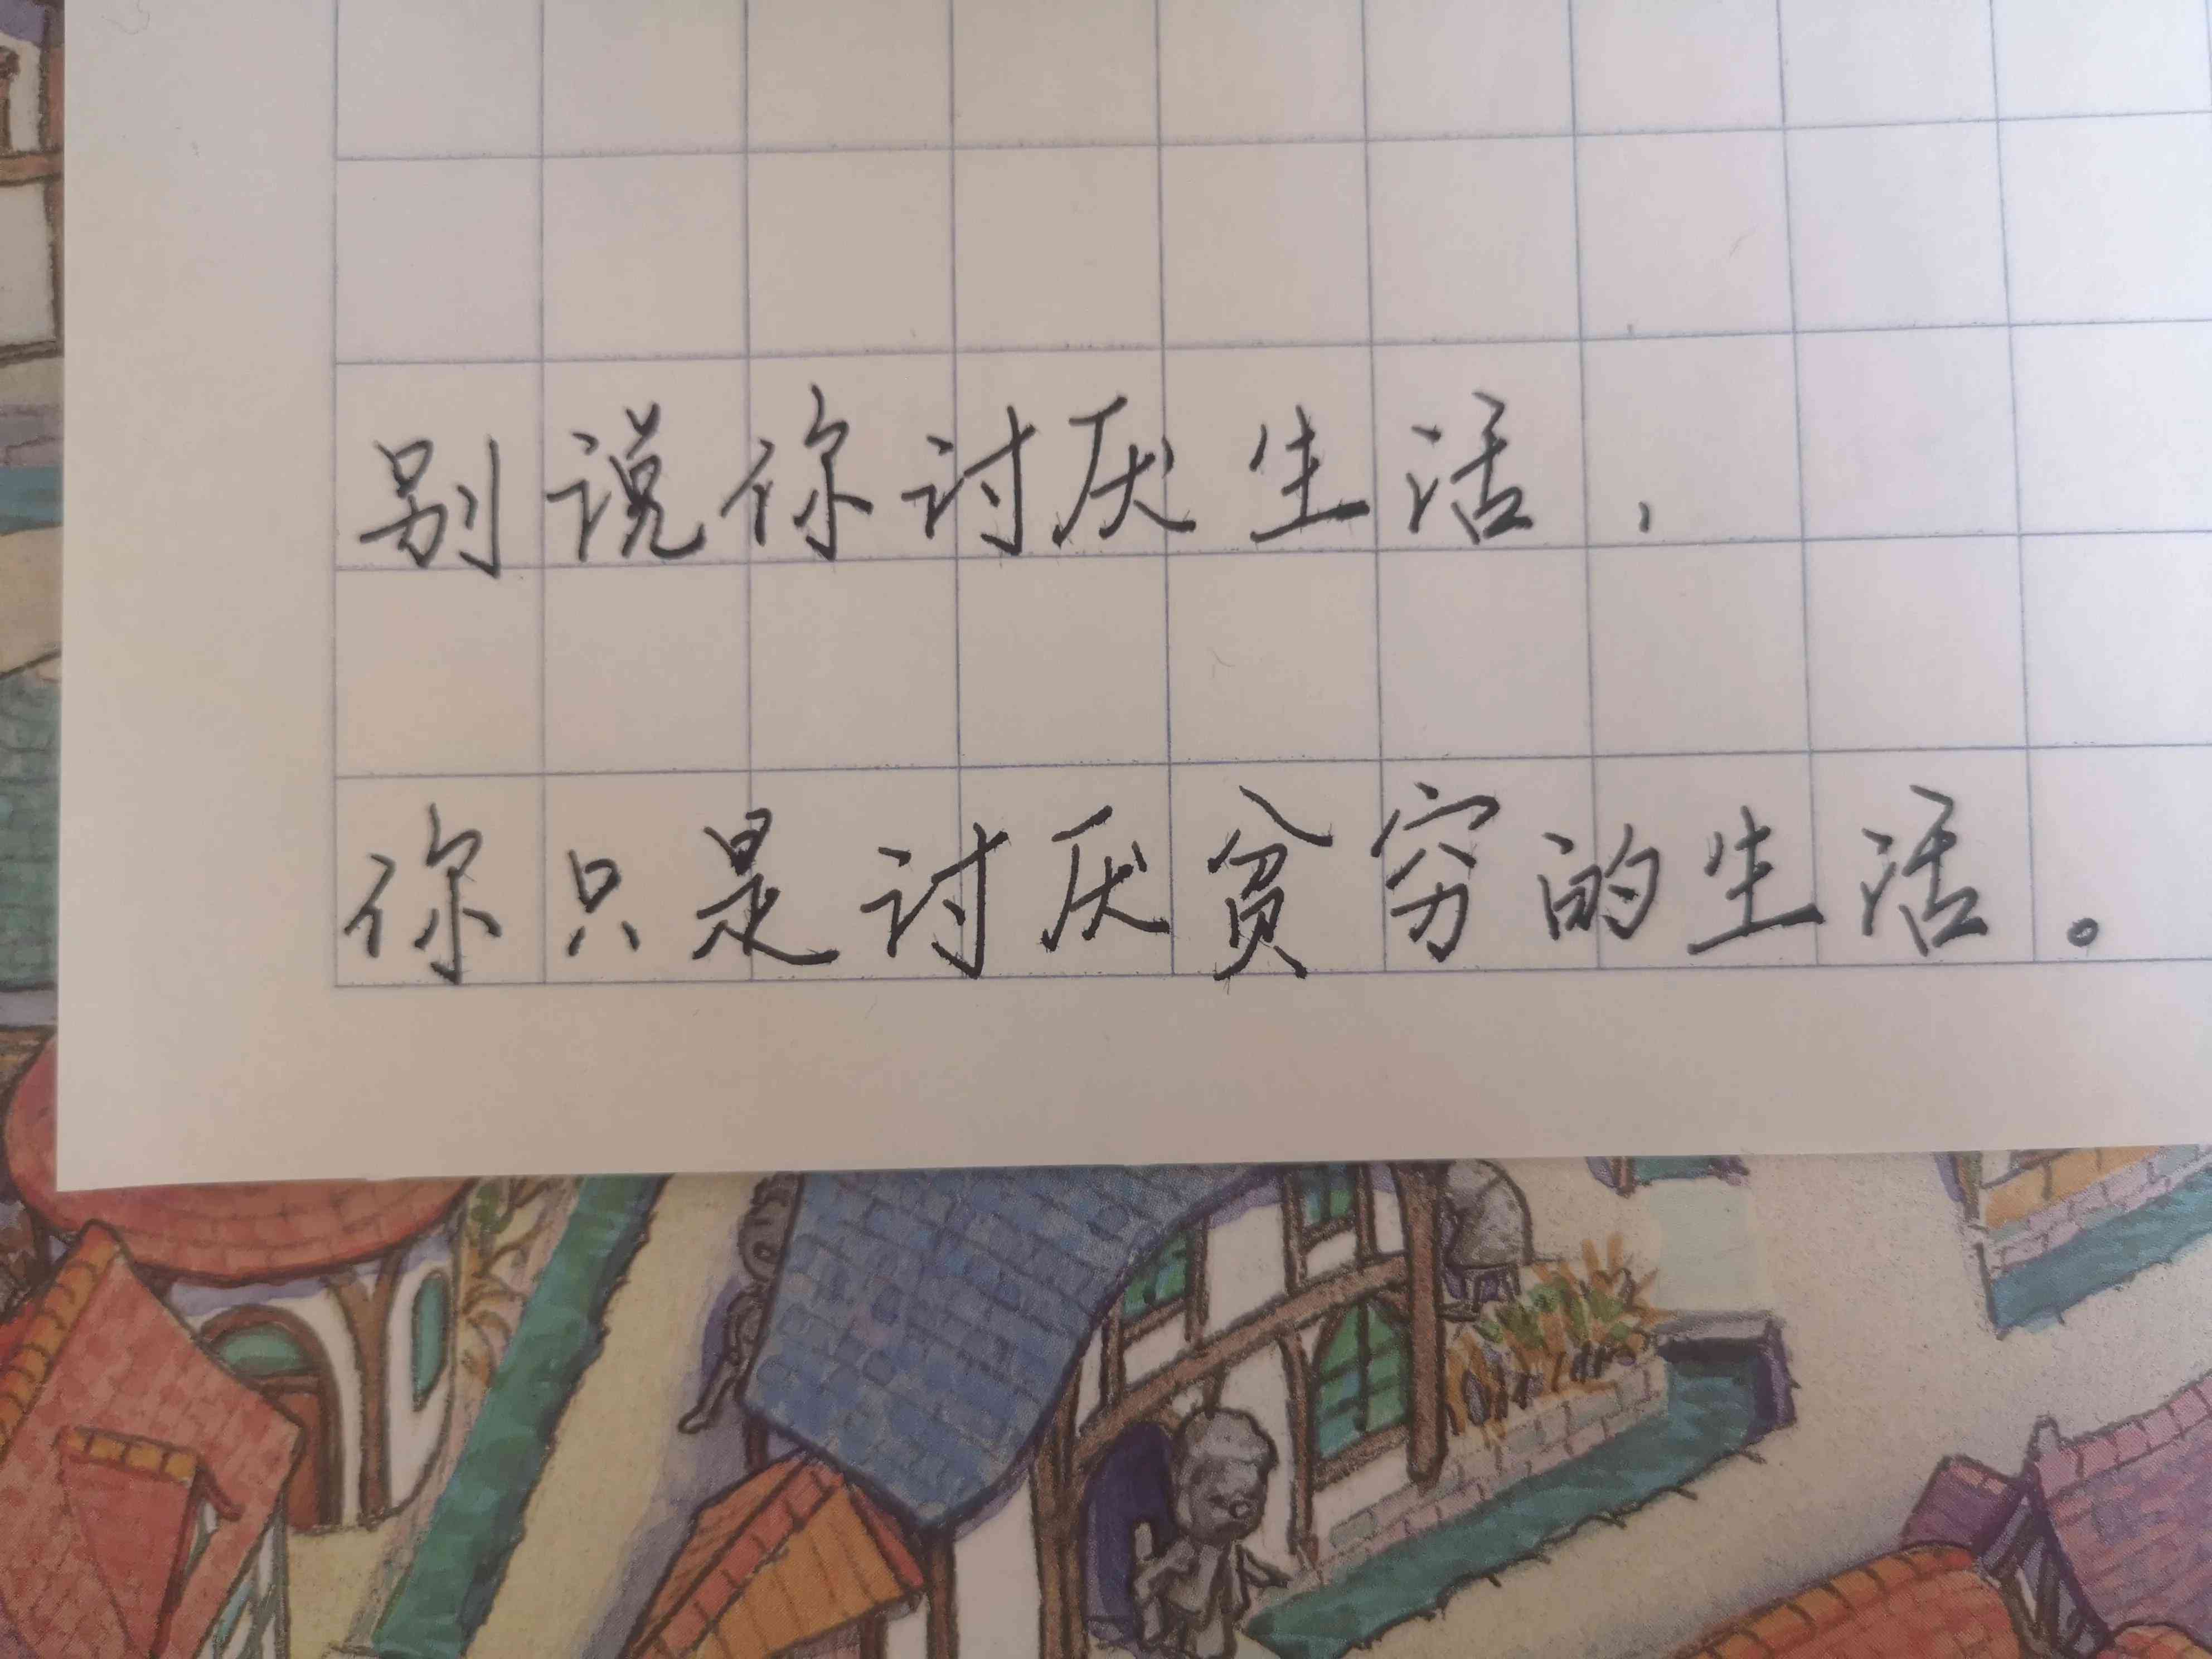 别说你讨厌生活，
你只是讨厌贫穷的生活。